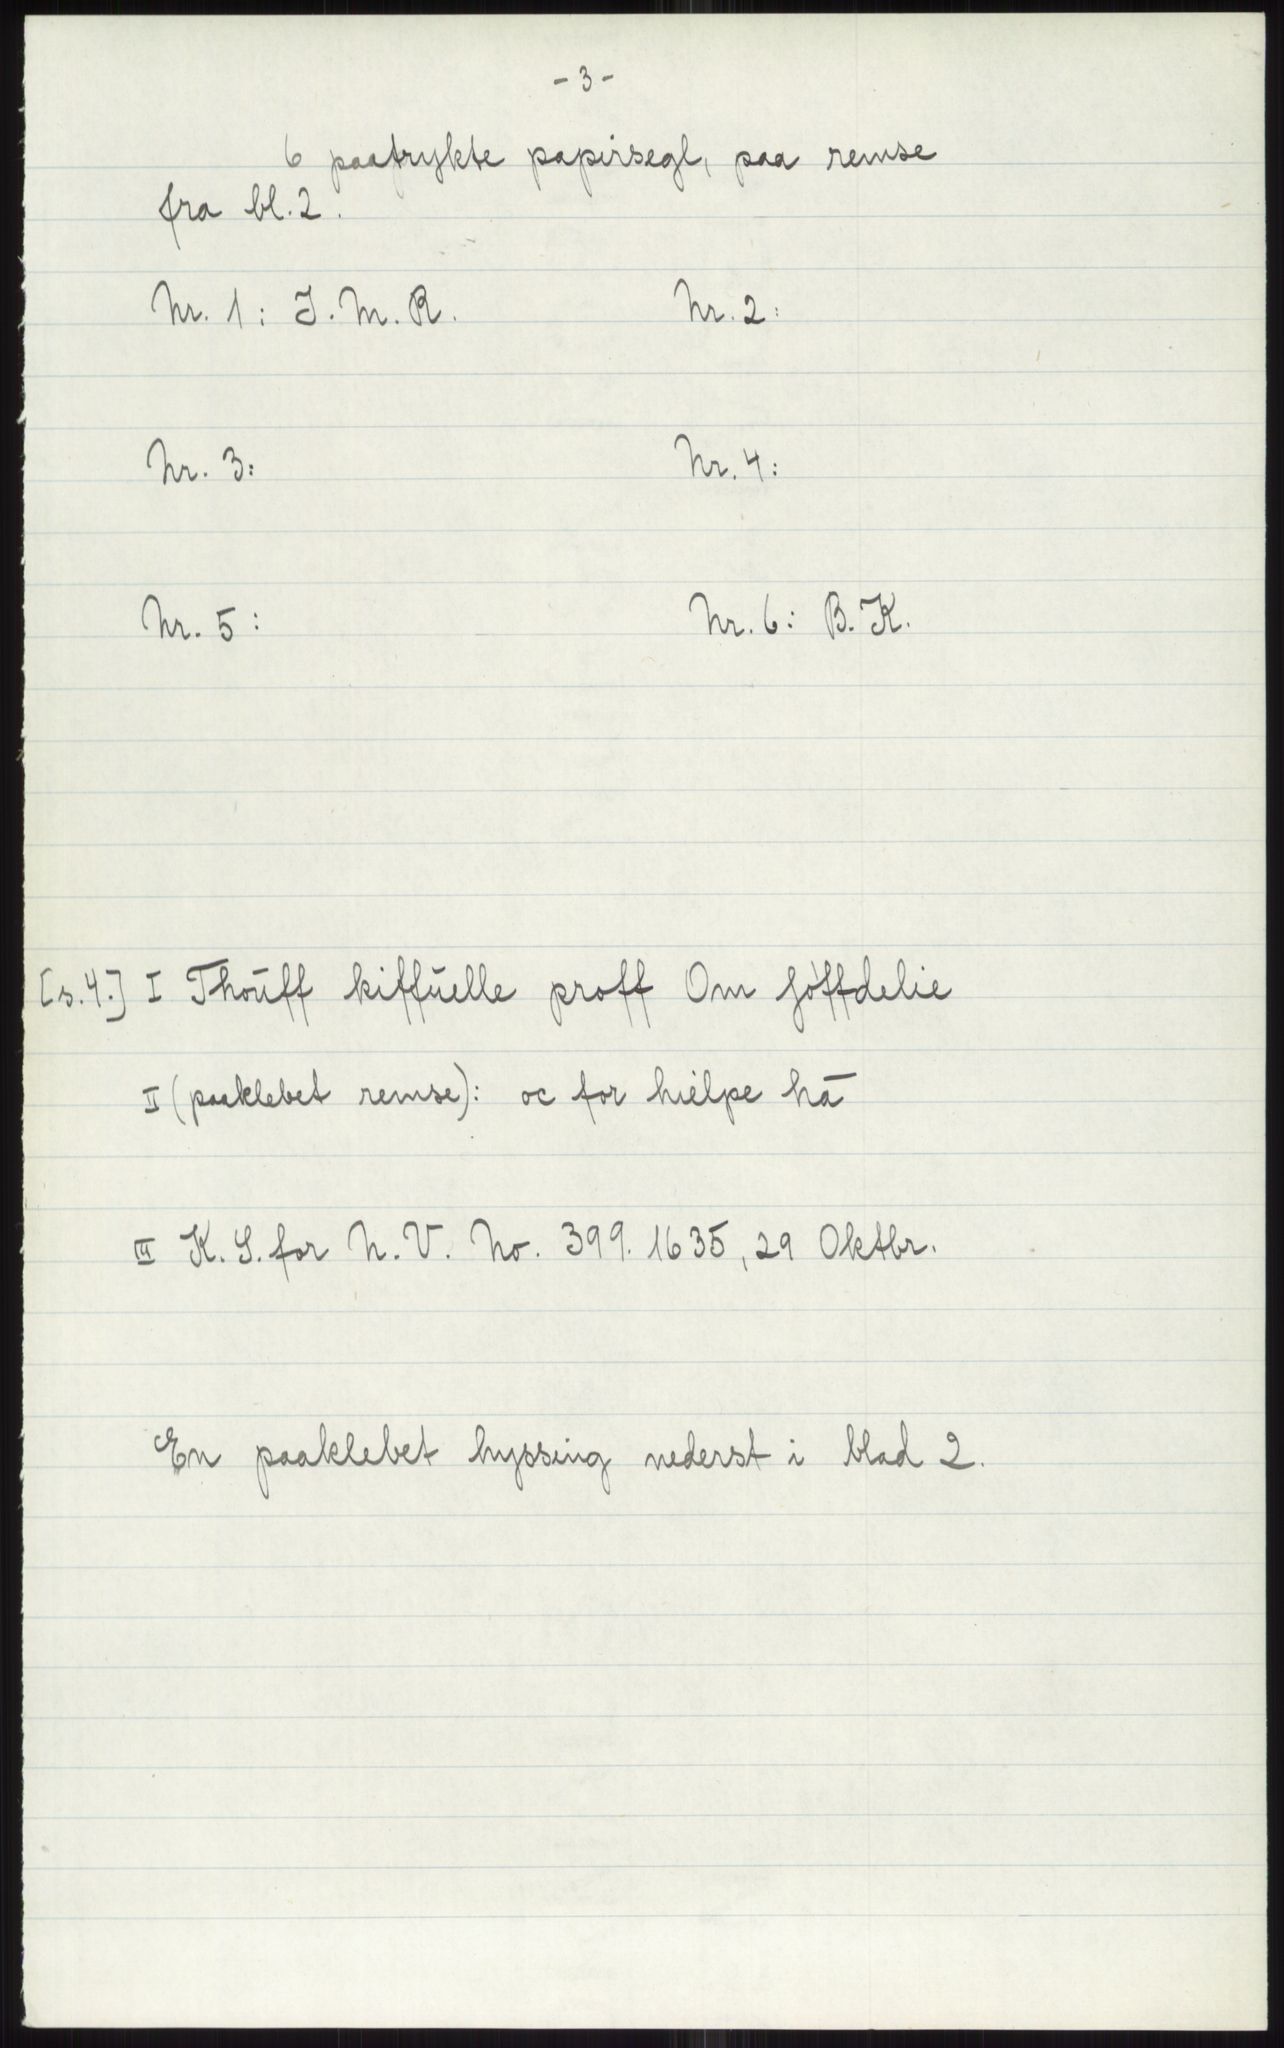 - 3 -
6 paatrykte papirsegl, paa remse
fra bl. 2.
Nr. 1: J. M. R. Nr. 2:
Nr. 3: Nr. 4:
Nr. 5: Nr. 6: B. K.
[s. 4.] I Thoŭff kiffŭelle proff Om
II (paaklebet remse): oc for hielpe hā
III K. S. for N. V. No. 399. 1635, 29 Oktbr.
En paaklebet hyssing nederst i blad 2.